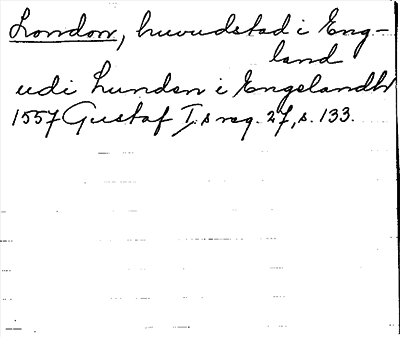 London, huvudstad i Eng-
land
udi Lunden i Engelandh
1557 Gustaf I:s reg. 27, s. 133.